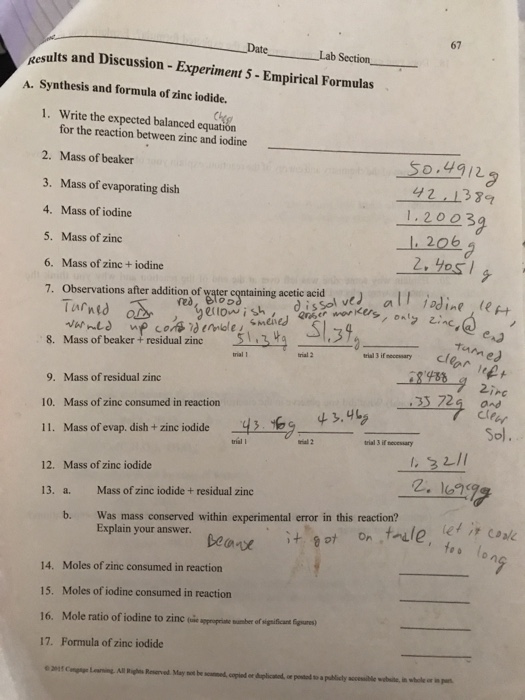 Date
Lab Section
67
Results and Discussion - Experiment 5 - Empirical Formulas
A. Synthesis and formula of zinc iodide.
1. Write the expected balanced equation
for the reaction between zinc and iodine
2. Mass of beaker 50.4912g
3. Mass of evaporating dish 42.1389
4. Mass of iodine 1.2003g
5. Mass of zinc 1.206g
6. Mass of zinc + iodine 2.4051g
7. Observations after addition of water containing acetic acid
Turned red, Blood yellowish, dissolved all iodine left
warmed up considerable, smelled markers, only zinc, @ end
turned clear left zinc and clear sol.
8. Mass of beaker + residual zinc 51.34g 51.34g
trial 1 trial 2 trial 3 if necessary
9. Mass of residual zinc .8488 g
10. Mass of zinc consumed in reaction .3572g
11. Mass of evap. dish + zinc iodide 43.46g 43.46g
trial 1 trial 2 trial 3 if necessary
12. Mass of zinc iodide 1.3211
13. a. Mass of zinc iodide + residual zinc 2.1699g
b. Was mass conserved within experimental error in this reaction?
Explain your answer.
Because it got on table, let it cook too long
14. Moles of zinc consumed in reaction
15. Moles of iodine consumed in reaction
16. Mole ratio of iodine to zinc (use appropriate number of significant figures)
17. Formula of zinc iodide
Learning. All Rights Reserved. May not be scanned, copied or duplicated, or posted to a publicly accessible website, in whole or in part.